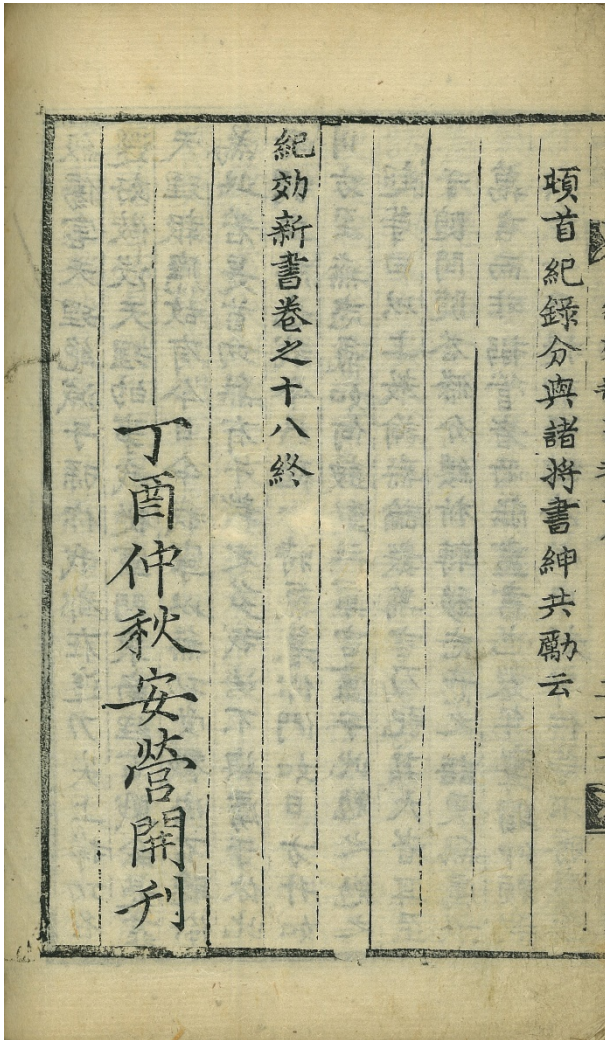 頓首紀錄分與諸將書紳共勵云
紀効新書卷之十八終
丁酉仲秋安營開刋